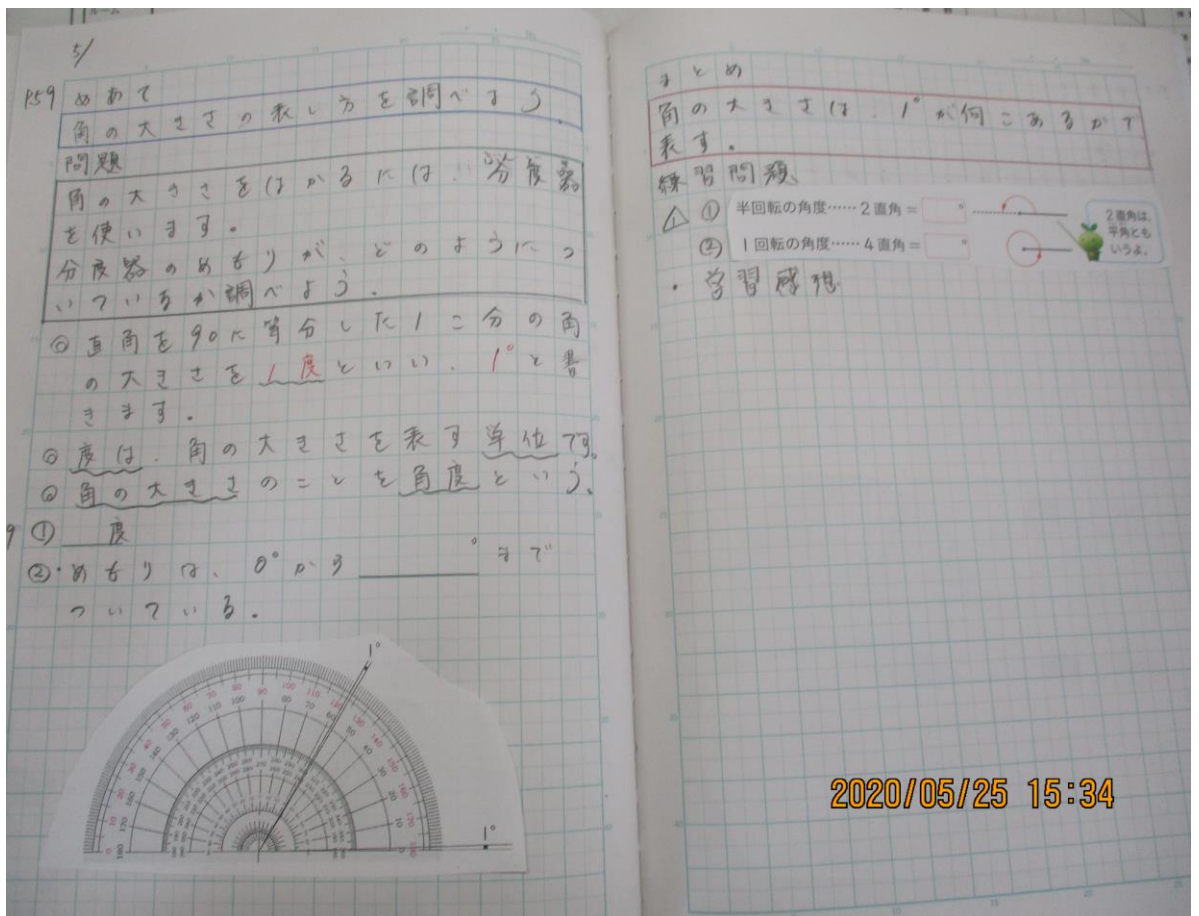 5/
P.59 めあて
角の大きさの表し方を調べよう。
問題
角の大きさをはかるには、分度器
を使います。
分度器のめもりが、どのようにつ
いているか調べよう。
◎直角を90に等分した1こ分の角
の大きさを1度といい、1°と書
きます。
◎度は、角の大きさを表す単位です。
◎角の大きさのことを角度という。
① 度
②・めもりは、0°から °まで
ついている。
1°
1°
まとめ
角の大きさは、1°が何こあるかで
表す。
練習問題
1 ① 半回転の角度……2直角= °
② 1回転の角度……4直角= °
2直角は、
平角とも
いうよ。
・学習感想
2020/05/25 15:34